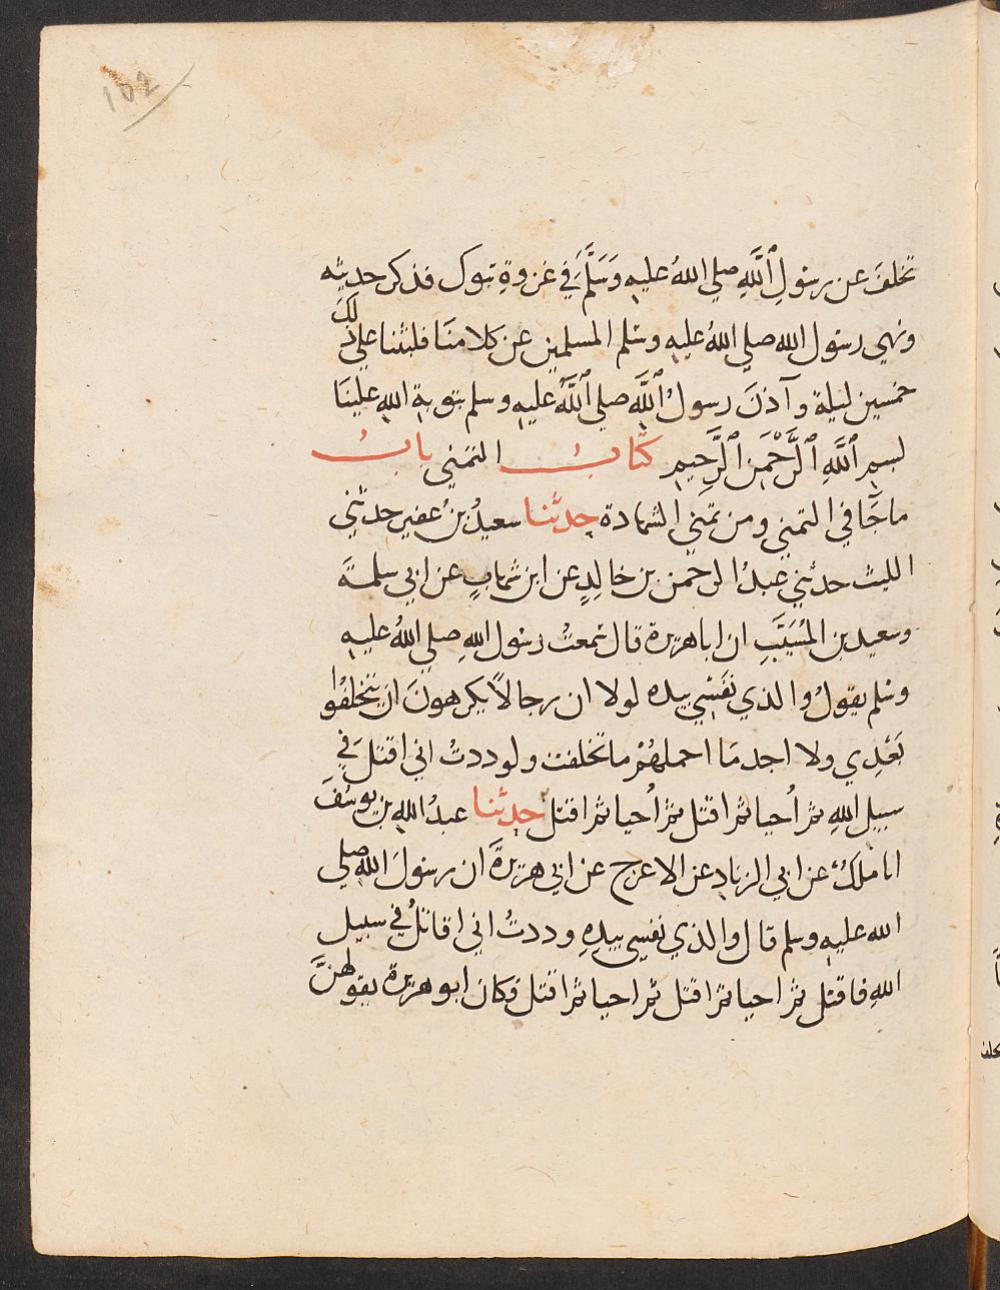 102
تخلفَ عن رسولِ ٱللَّهِ صلي اللهُ عليهِ وَسَلَّمَ في غزوةِ تبوك فذكر حديثه
ونهي رسول الله صلي اللهُ عليهِ وسلم المسلمين عن كلامنَا فلبثنا علي ذلكَ
خمسين ليلة وآذنَ رسولُ ٱللَّهِ صلي ٱللَّهُ عليهِ وسلم بتوبة اللهِ علينَا
بسمِ ٱللَّهِ ٱلرَّحْمَنِ ٱلرَّحِيمِ كتَابُ التمني بابُ
ماجَّا في التمني ومن تمني الشهادة حدثنا سعيدُ بنُ عفير حدثني
الليث حدثني عبدُ الرحمن بن خالِدٍ عن ابن شهابٍ عن ابي سلمةَ
وسعيد بن المُسَيَّبِ ان اباهريرة قال سَمعتُ رسول اللهِ صلي اللهُ عليهِ
وسلم يقولُ والذي نَفسِي بيده لولا ان رجالاً يكرهونَ ان يتخلفُوا
بَعْدِي ولا اجد مَا احملهُمْ ما تخلفت ولوددتُ اني اقتلَ في
سبيل اللهِ ثم اُحيا ثم اقتل ثم اُحيا ثم اقتل حدثنا عبدُ اللهِ بن يوسُفَ
انا ملكُ عن ابي الزنادِ عن الاعرج عن ابي هريرةَ ان رسولَ اللهِ صلي
الله عليهِ وسلم قال والذي نفسِي بيدِهِ وددتُ اني اقاتلُ في سبيل
اللهِ فاقتل ثم احيا ثم اقتل ثم احيا ثم اقتل فكان ابو هريرة يقولهنَّ